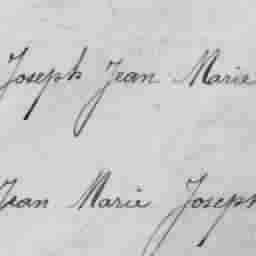 Joseph Jean Marie
Jean Marie Joseph